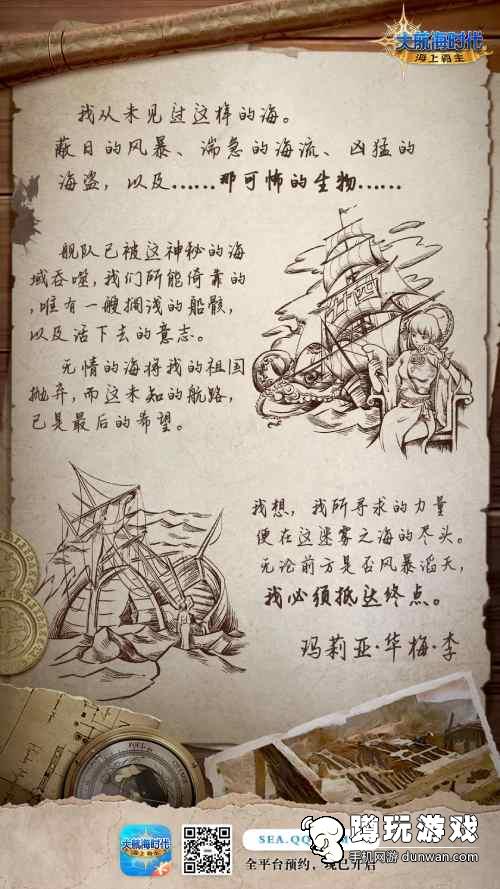 大航海时代
海上霸主
我从未见过这样的海。
蔽日的风暴、湍急的海流、凶猛的
海盗，以及……那可怖的生物……
舰队已被这神秘的海
域吞噬，我们所能倚靠的
，唯有一艘搁浅的船骸，
以及活下去的意志。
无情的海将我的祖国
抛弃，而这未知的航路，
已是最后的希望。
我想，我所寻求的力量
便在这迷雾之海的尽头。
无论前方是否风暴滔天，
我必须抵达终点。
玛莉亚·华梅·李
大航海时代
海上霸主
SEA.QQ
全平台预约，现已开启
蹲玩游戏
手机网游 dunwan.com